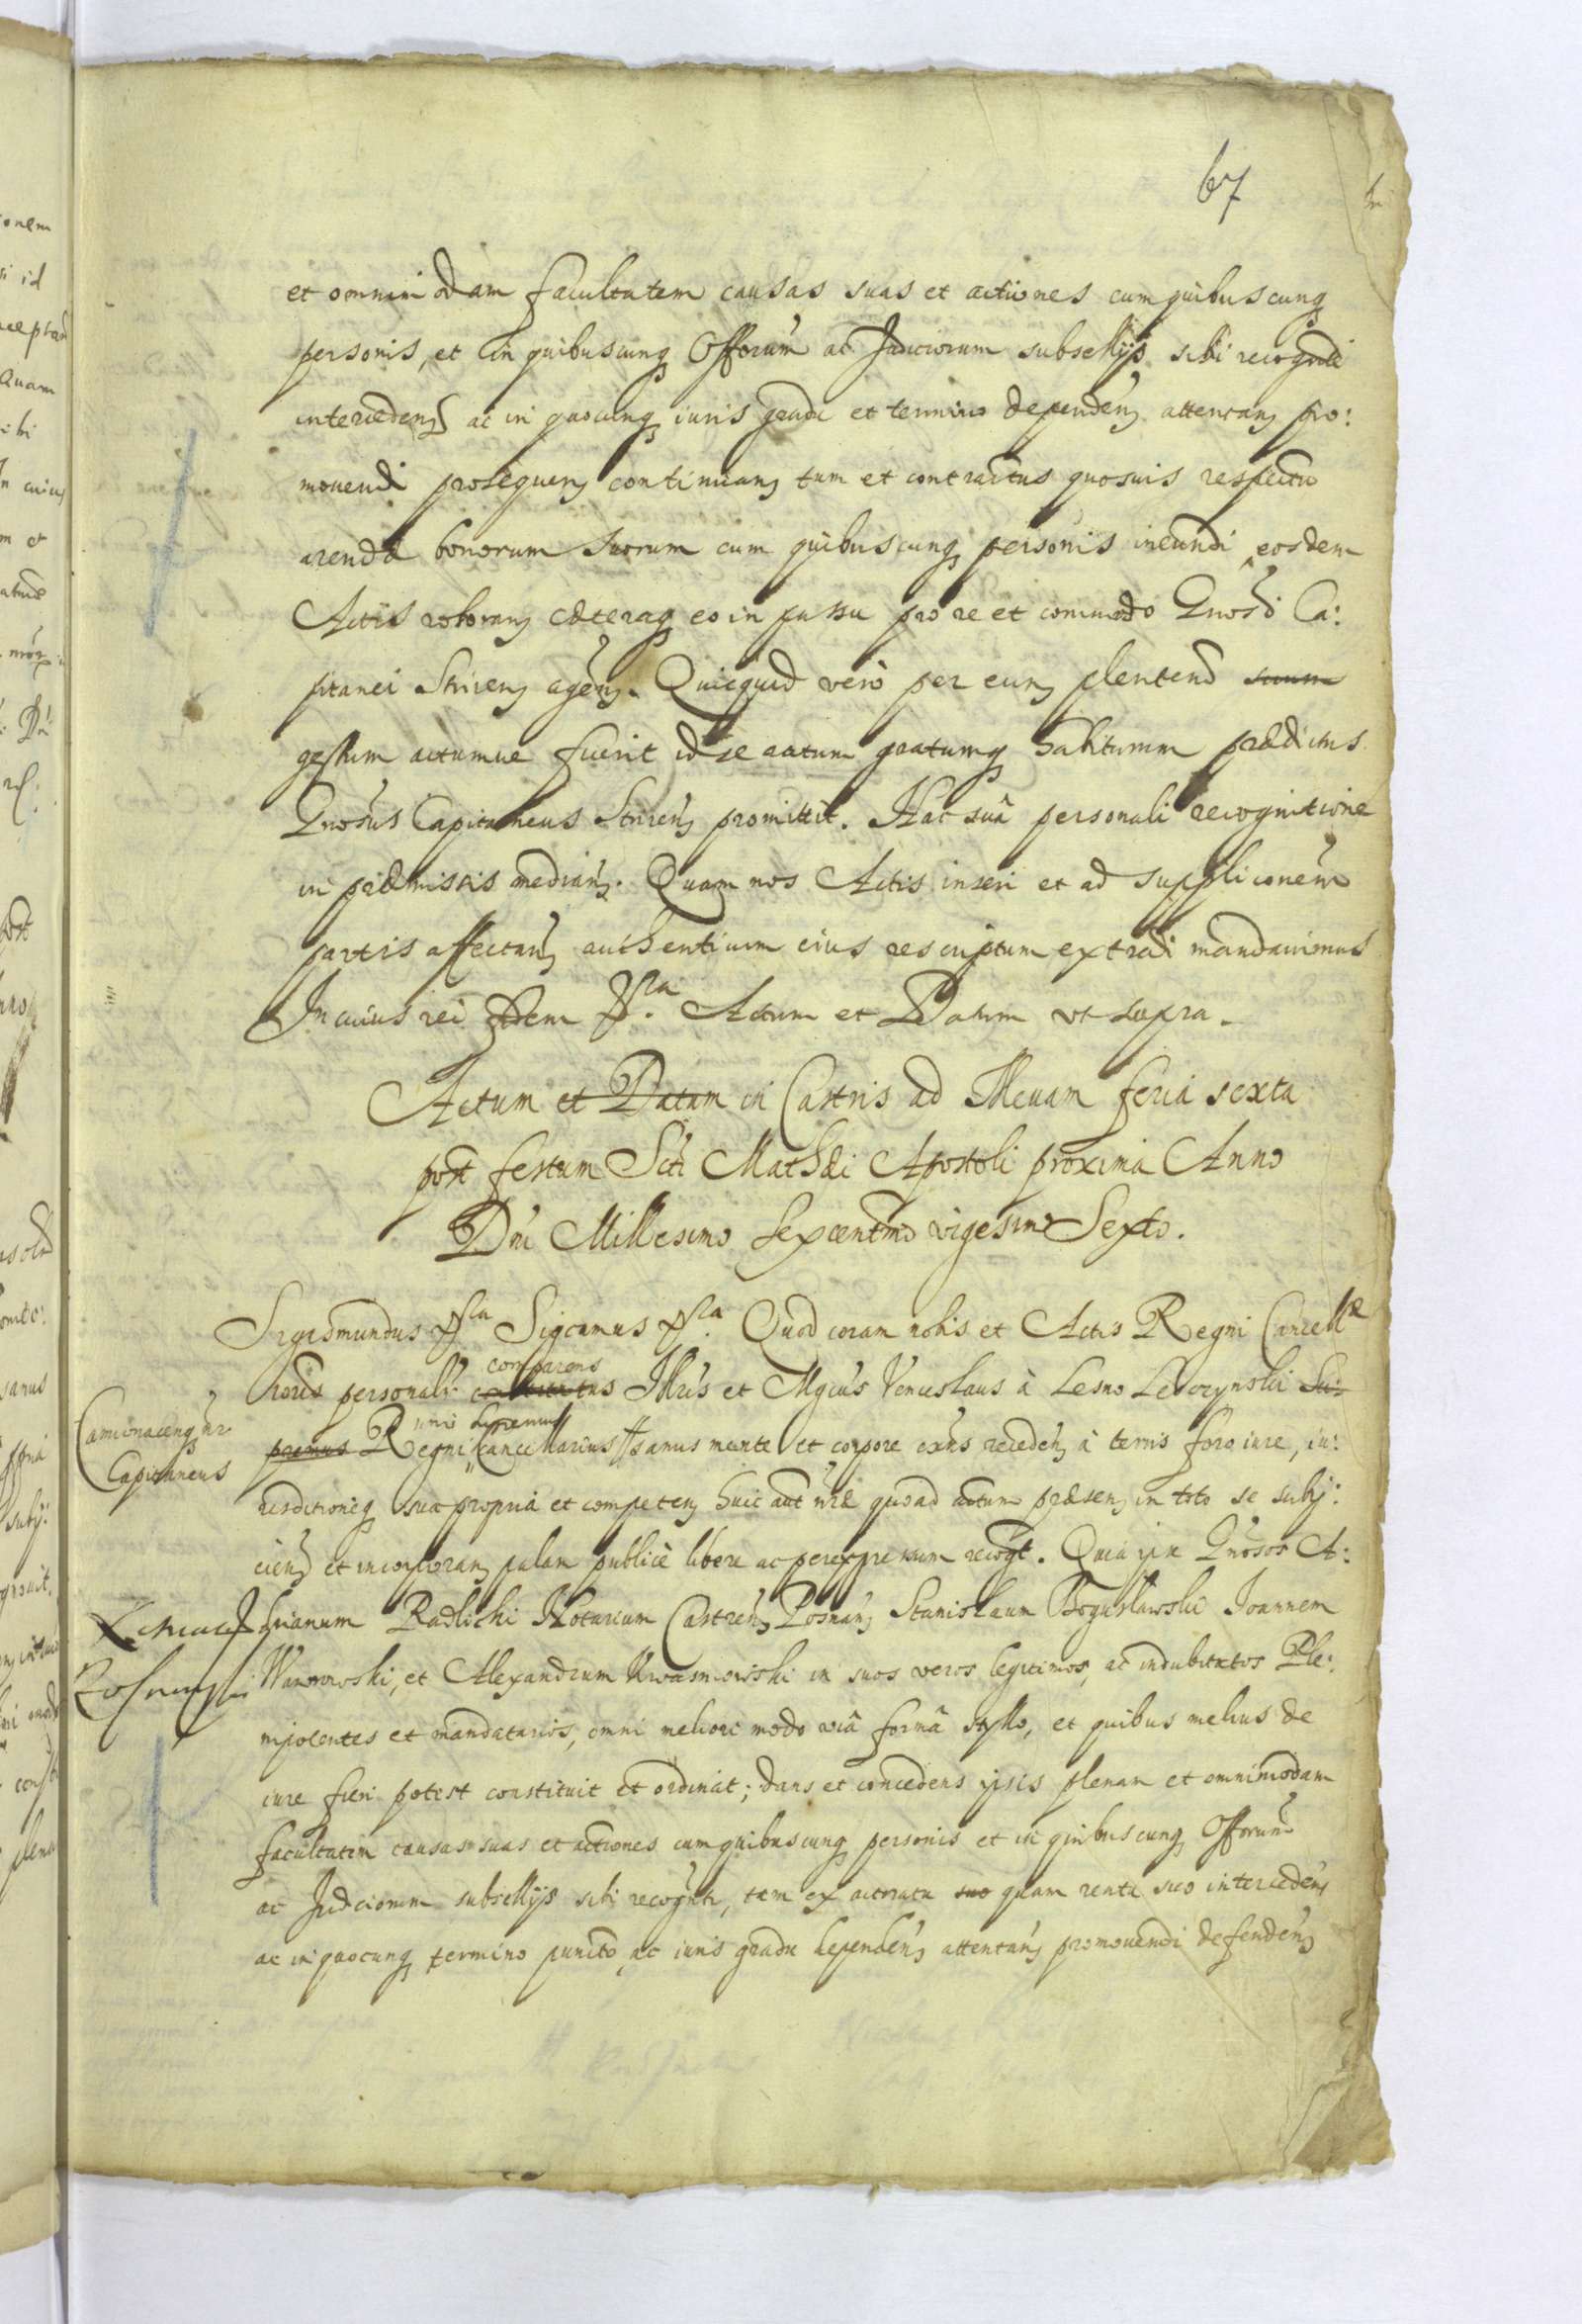 67
et omnimodam facultatem causas suas et actiones cum quibuscunq
personis, et in quibuscunq Offorum ac Judiciorum subsellijs sibi recognti
intercedens ac in quocunq iuris gradu et termino dependen attentan pro:
mouendi prosequen continuan tum et contractus quosuis respectu
arendæ bonorum suorum cum quibuscunq personis ineundi eosdem
Actis roboran cæteraq eo in passu pro re et commodo Gnosi Ca:
pitanei Striren agen. Quicquid verò per eun plentend suum
gestum actumue fuerit id se ratum gratumq habiturum prædictus
Gnosus Capitaneus Striren promittit. Hac suâ personali recognitione
in præmissis median. Quam nos Actis inseri et ad suppliconem
partis affectan authenticum eius rescriptum extradi mandauimus
In cuius rei fidem &ra. Actum et Datum vt supra.
Actum et Datum in Castris ad Mevam feria sexta
post festum Scti Mathæi Apostoli proxima Anno
Dni Millesimo Sexcentmo vigesimo Sexto.
Sigismundus &ra Sigcamus &ra. Quod coram nobis et Actis Regni Cancellæ
comparens
noris personalr Illris et Mgcus Venceslaus à Lesno Lesczynski Su:
Camionacen nr
Capitaneus
premus Regni Cancellarius sanus mente et corpore exns receden à terris foro iure, iu:
risditioneq sua propria et competen huic aut nræ quoad actum præsen in toto se subij:
cien et incorporan palam publicè libere ac per expressum recogt. Quia ipse Gnosos A:
drianum Radlicki Notarium Castren Posnan Stanislaum Boguslawski Joannem
et Alexandrum Kwasniowski in suos veros legitimos, ac indubitatos Ple:
nipotentes et mandatarios, omni meliori modo viâ formâ styllo, et quibus melius de
iure fieri potest constituit et ordinat; dans et concedens ipsis plenam et omnimodam
facultatem causas suas et actiones cum quibuscunq personis et in quibuscunq Offorum
ac Judiciorum subsellijs sibi recognti, tam ex actoratu suo quam reatu suo interceden
ac in quocunq termino puncto ac iuris gradu dependen attentan promouendi defenden